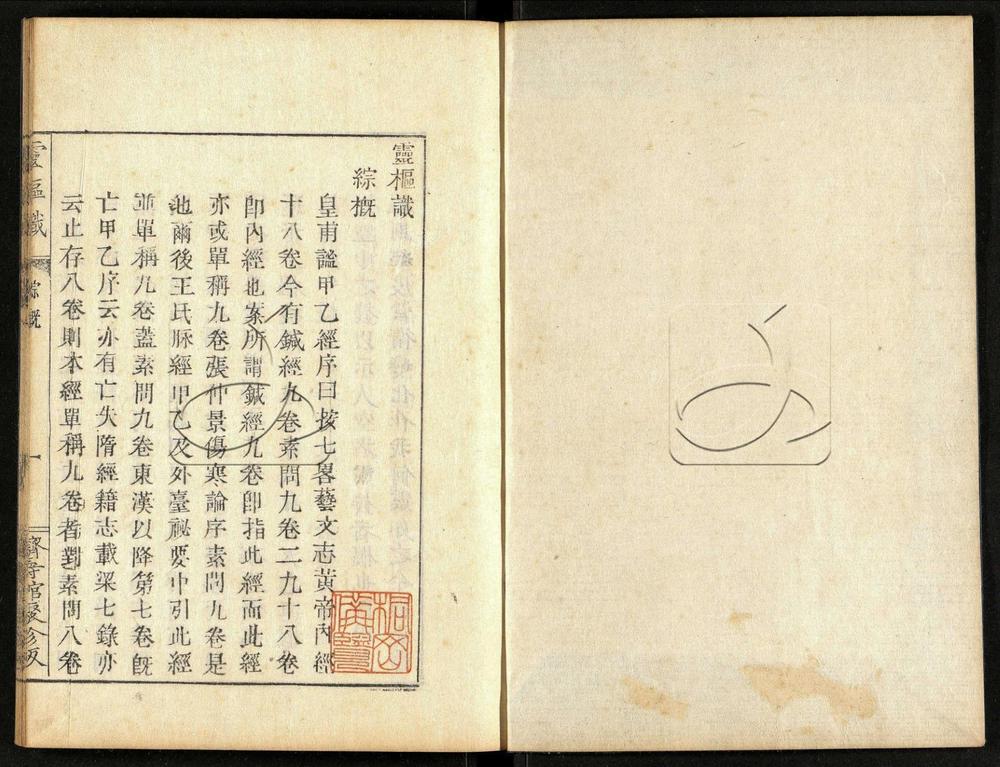 靈樞識
綜概
皇甫謐甲乙經序曰按七畧藝文志黃帝內經
十八卷今有鍼經九卷素問九卷二九十八卷
卽內經也案所謂鍼經九卷卽指此經而此經
亦或單稱九卷張仲景傷寒論序素問九卷是
也爾後王氏脉經甲乙及外臺祕要中引此經
並單稱九卷蓋素問九卷東漢以降第七卷旣
亡甲乙序云亦有亡失隋經籍志載梁七錄亦
云止存八卷則本經單稱九卷者對素問八卷
靈樞識
綜概
一
躋壽館聚珍版